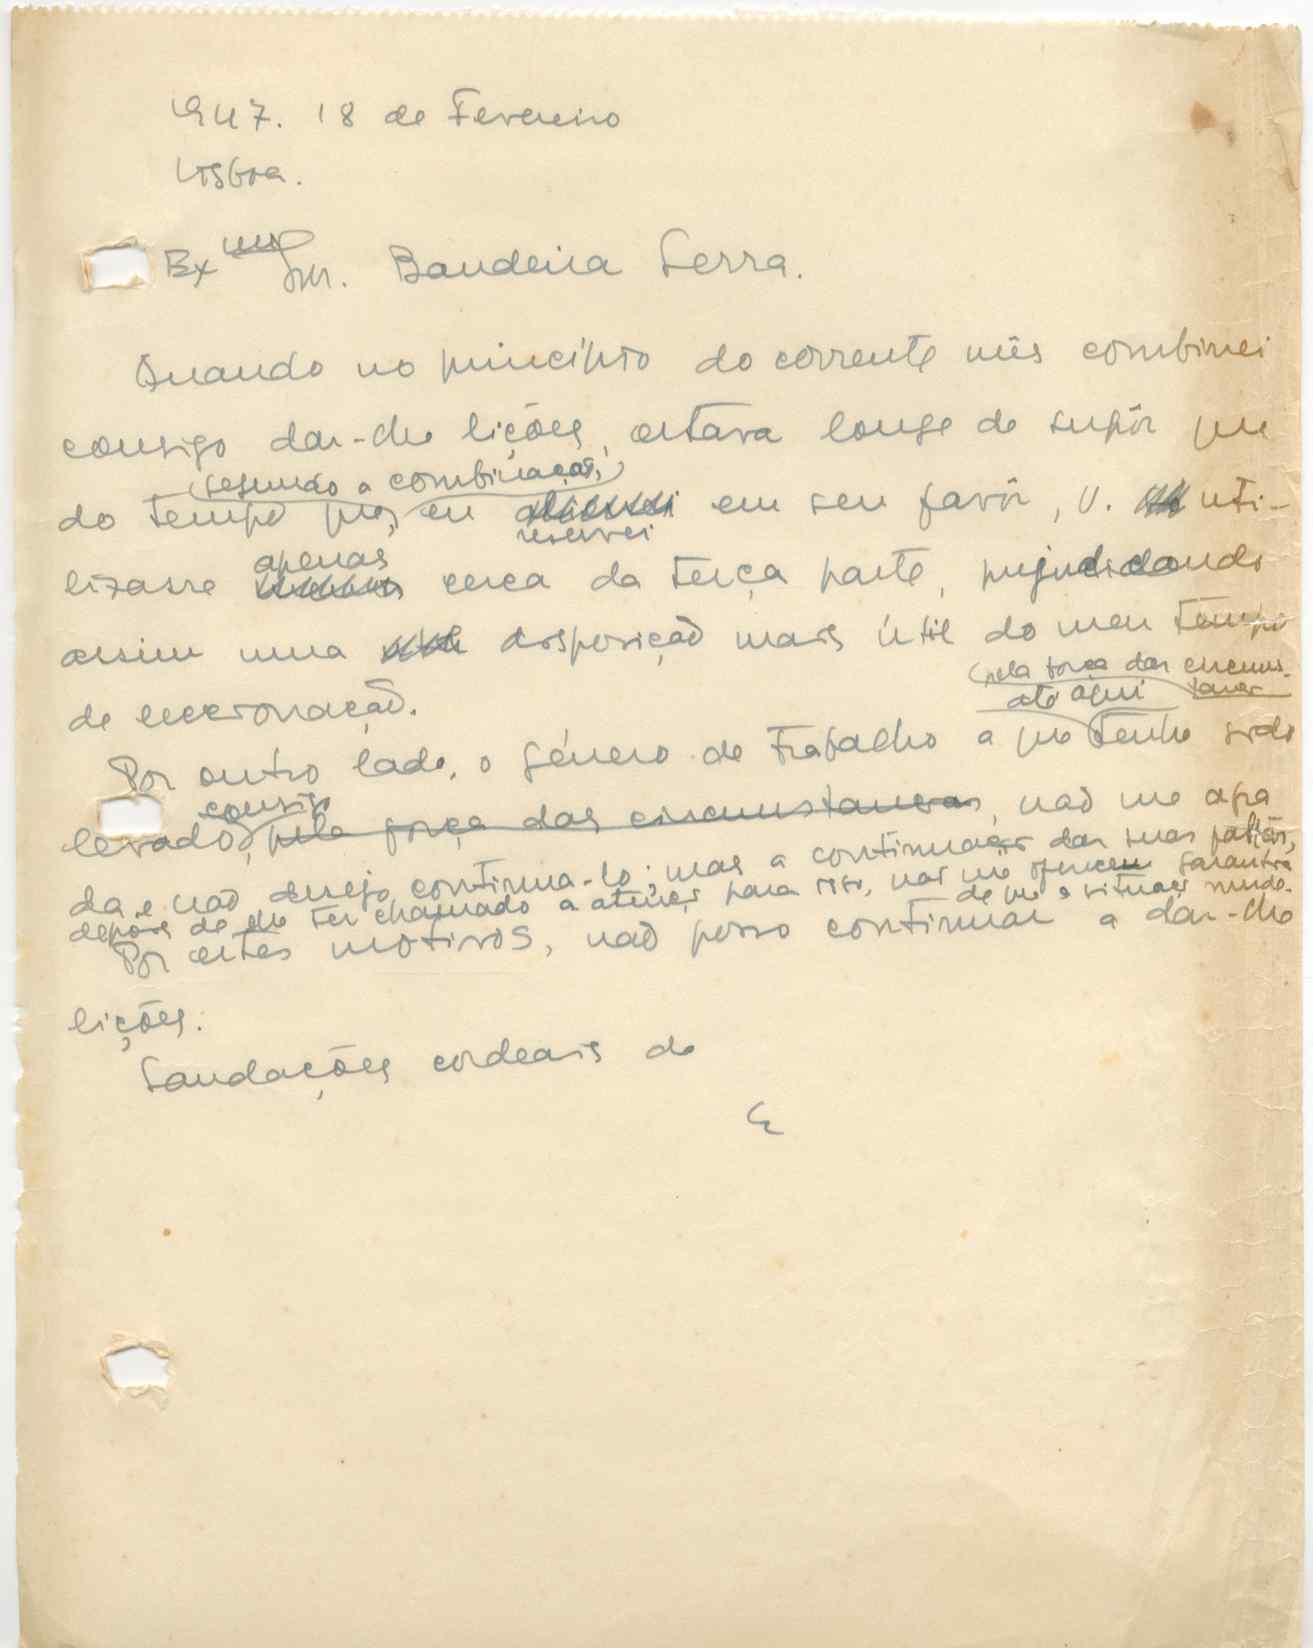 1947. 18 de Fevereiro
Lisboa.
Ex mo Snr. Bandeira Serra.
Quando no princípio do corrente mês combinei
consigo dar-lhe lições, estava longe de supôr que
segundo a combinação,
do tempo que, eu em seu favôr, V. uti-
reservei
apenas
lizasse cerca da terça parte, prejudicando
assim uma disposição mais útil do meu tempo
pela força das circuns-
tancias
até aqui
de leccionação.
Por outro lado, o género de trabalho a que tenho sido
consigo
levado, pela força das circumstancias, não me agra
da e não desejo continua-lo; mas a continuação das suas faltas,
depois de lhe ter chamado a atenção para isso, não me oferecem garantia
de que a situação mude.
Por estes motivos, não posso continuar a dar-lhe
lições.
Saudações cordeais de